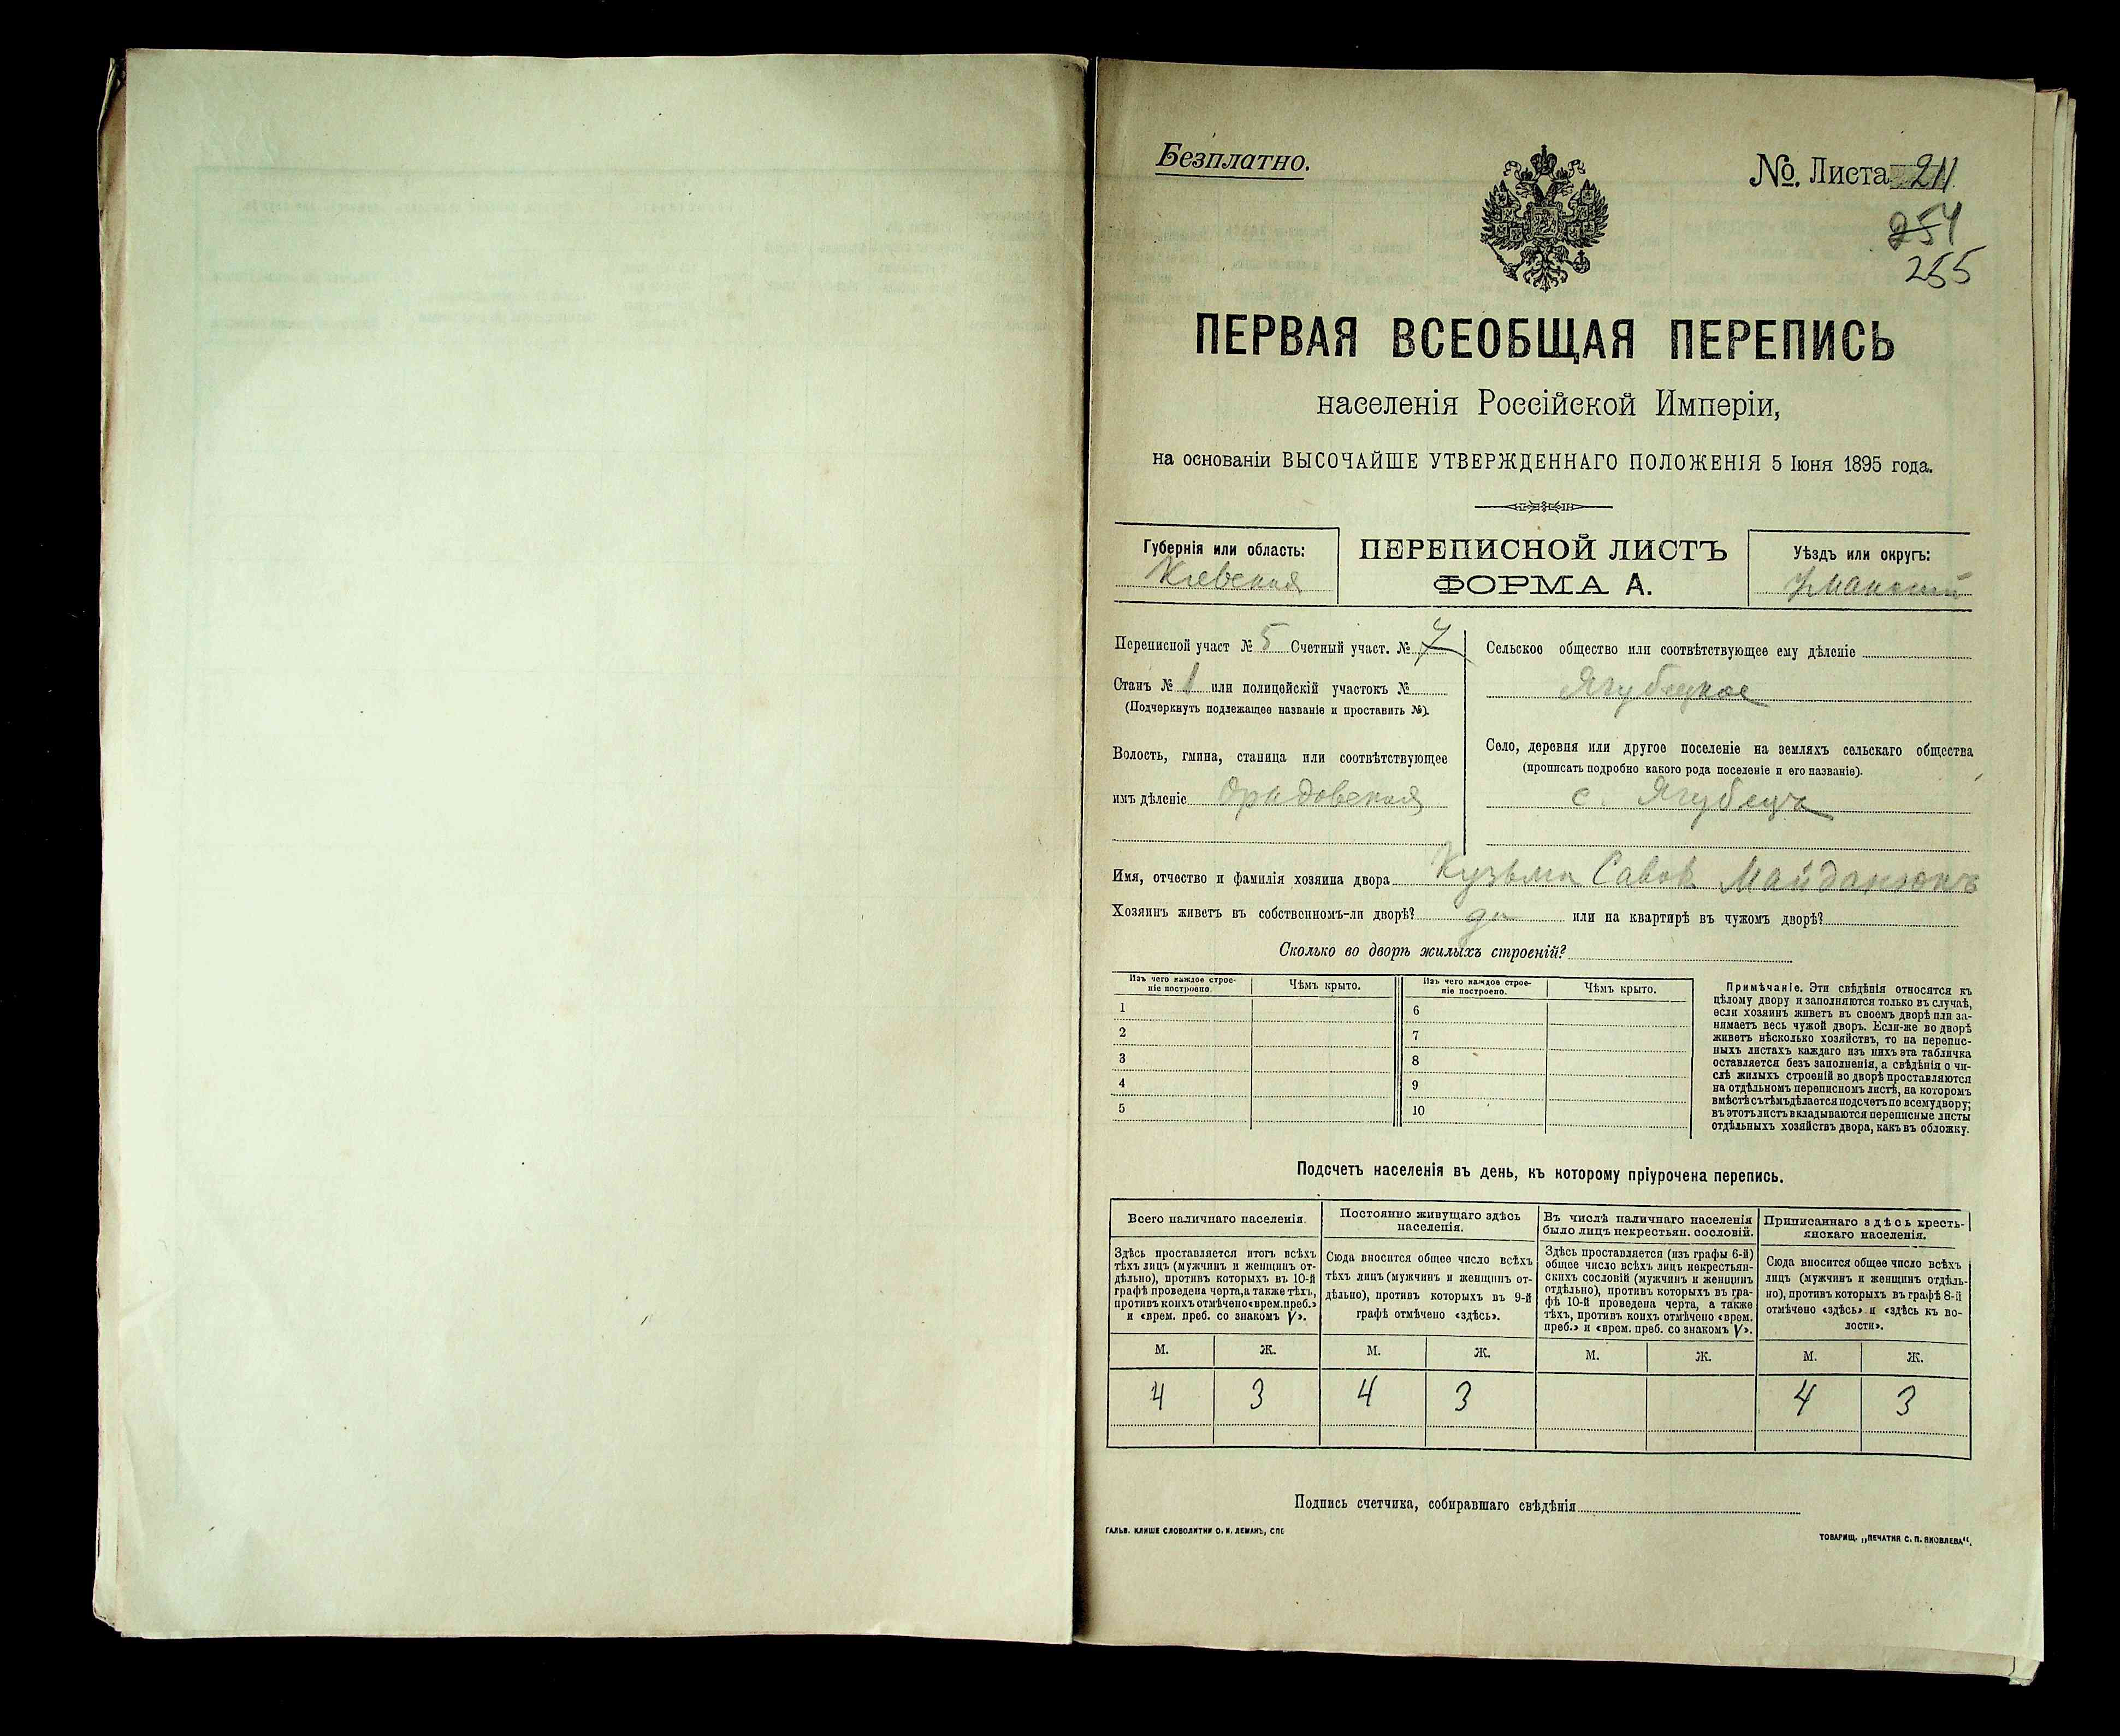 Безплатно.
№. Листа 211
254
255
ПЕРВАЯ ВСЕОБЩАЯ ПЕРЕПИСЬ
населенія Россійской Имперіи,
на основаніи ВЫСОЧАЙШЕ УТВЕРЖДЕННАГО ПОЛОЖЕНІЯ 5 Іюня 1895 года.
Губернія или область:
Кіевская
ПЕРЕПИСНОЙ ЛИСТЪ
ФОРМА А.
Уѣздъ или округъ:
Уманскій
Переписной участ № 5 Счетный участ. № 7
Станъ № 1 или полицейскій участокъ №
(Подчеркнуть подлежащее названіе и проставить №).
Волость, гмина, станица или соотвѣтствующее
имъ дѣленіе Орадовская
Сельское общество или соотвѣтствующее ему дѣленіе
Ягубецкое
Село, деревня или другое поселеніе на земляхъ сельскаго общества
(прописать подробно какого рода поселеніе и его названіе).
с. Ягубецъ
Имя, отчество и фамилія хозяина двора Кузьма Савов Майданюкъ
Хозяинъ живетъ въ собственномъ-ли дворѣ? да или на квартирѣ въ чужомъ дворѣ?
Сколько во дворѣ жилыхъ строеній?
Изъ чего каждое строе-
ніе построено.
Чѣмъ крыто.
Изъ чего каждое строе-
ніе построено.
Чѣмъ крыто.
1
6
2
7
3
8
4
9
5
10
Примѣчаніе. Эти свѣдѣнія относятся къ
цѣлому двору и заполняются только въ случаѣ,
если хозяинъ живетъ въ своемъ дворѣ или за-
нимаетъ весь чужой дворъ. Если-же во дворѣ
живетъ нѣсколько хозяйствъ, то на перепис-
ныхъ листахъ каждаго изъ нихъ эта табличка
оставляется безъ заполненія, а свѣдѣнія о чи-
слѣ жилыхъ строеній во дворѣ проставляются
на отдѣльномъ переписномъ листѣ, на которомъ
вмѣстѣ съ тѣмъ дѣлается подсчетъ по всему двору;
въ этотъ листъ вкладываются переписные листы
отдѣльныхъ хозяйствъ двора, какъ въ обложку.
Подсчетъ населенія въ день, къ которому пріурочена перепись.
Всего наличнаго населенія.
Здѣсь проставляется итогъ всѣхъ
тѣхъ лицъ (мужчинъ и женщинъ от-
дѣльно), противъ которыхъ въ 10-й
графѣ проведена черта, а также тѣхъ,
противъ коихъ отмѣчено «врем. преб.»
и «врем. преб. со знакомъ V».
Постоянно живущаго здѣсь
населенія.
Сюда вносится общее число всѣхъ
тѣхъ лицъ (мужчинъ и женщинъ от-
дѣльно), противъ которыхъ въ 9-й
графѣ отмѣчено «здѣсь».
Въ числѣ наличнаго населенія
было лицъ некрестьян. сословій.
Здѣсь проставляется (изъ графы 6-й)
общее число всѣхъ лицъ некрестьян-
скихъ сословій (мужчинъ и женщинъ
отдѣльно), противъ которыхъ въ гра-
фѣ 10-й проведена черта, а также
тѣхъ, противъ коихъ отмѣчено «врем.
преб.» и «врем. преб. со знакомъ V».
Приписаннаго здѣсь кресть-
янскаго населенія.
Сюда вносится общее число всѣхъ
лицъ (мужчинъ и женщинъ отдѣль-
но), противъ которыхъ въ графѣ 8-й
отмѣчено «здѣсь» и «здѣсь къ во-
лости».
М. Ж. М. Ж. М. Ж. М. Ж.
4 3 4 3 4 3
Подпись счетчика, собиравшаго свѣдѣнія
ГАЛЬВ. КЛИШЕ СЛОВОЛИТНИ О. И. ЛЕМАНЪ, СПБ
ТОВАРИЩ. „ПЕЧАТНЯ С. П. ЯКОВЛЕВА“.